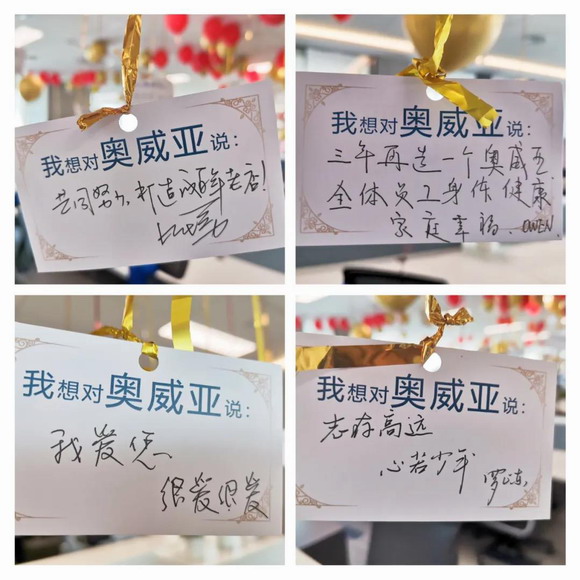 我想对奥威亚说:
共同努力,打造成百年老店!
我想对奥威亚说:
三年再造一个奥威亚
全体员工身体健康
家庭幸福. OWEN
我想对奥威亚说:
我爱您
很爱很爱
我想对奥威亚说:
志存高远
心若少年